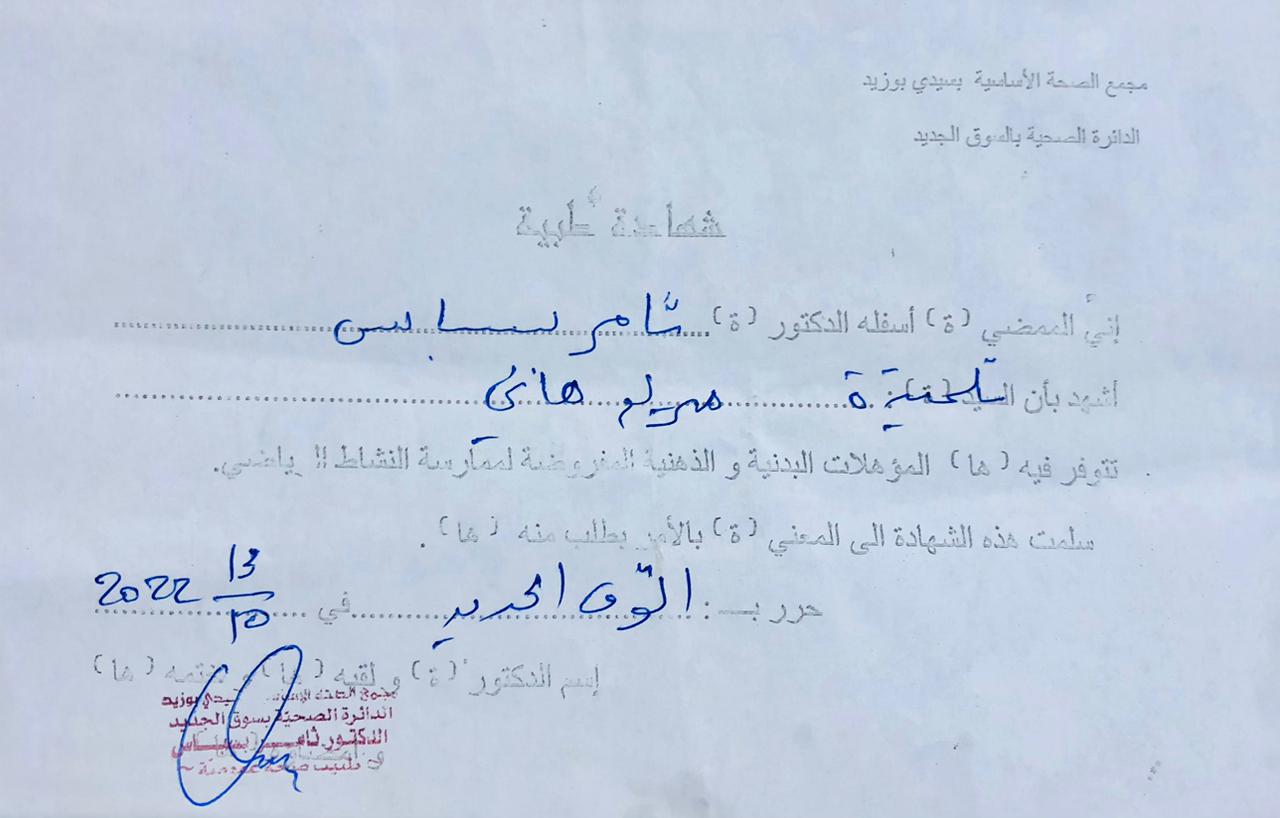 مجمع الصحة الأساسية بسيدي بوزيد
الدائرة الصحية بالسوق الجديد
شهادة طبية
إني الممضي (ة) أسفله الدكتور (ة) ثامر
أشهد بأن التلميذة مريم هاني
تتوفر فيه (ها) المؤهلات البدنية و الذهنية المفروضة لممارسة النشاط الرياضي.
سلمت هذه الشهادة الى المعني (ة) بالأمر بطلب منه (ها).
حرر بـ : السوق الجديد في 13/10 2022
إسم الدكتور (ة) و لقبه (ها) و ختمه (ها)
مجمع الصحة الأساسية بسيدي بوزيد
الدائرة الصحية بسوق الجديد
الدكتور ثامر
طبيب صحة عمومية